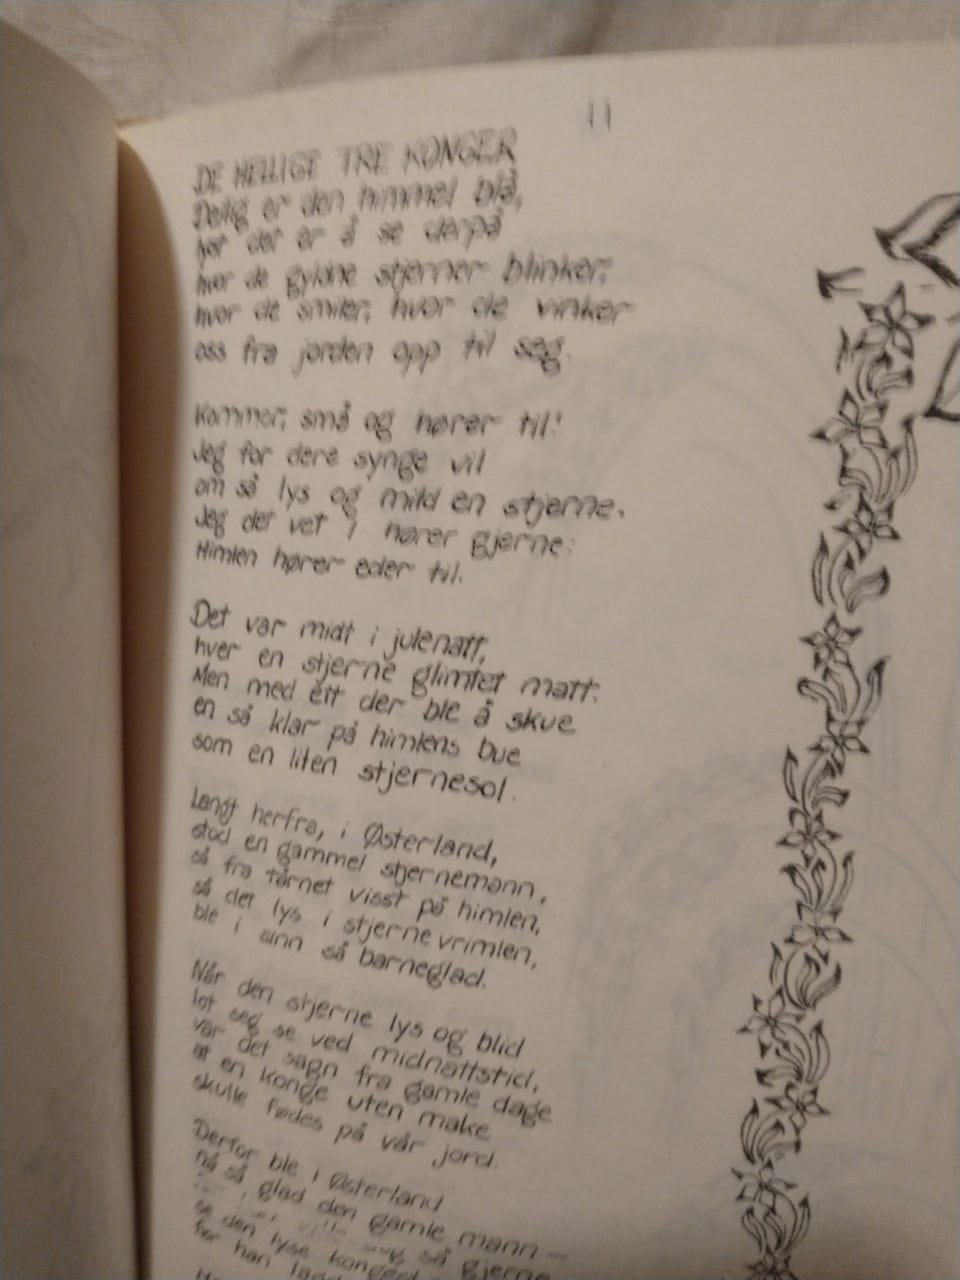 11
DE HELLIGE TRE KONGER
Deilig er den himmel blå,
det er å se derpå
hvor de gyldne stjerner blinker,
hvor de smiler, hvor de vinker
oss fra jorden opp til seg.
Kommer, små og hører til!
Jeg for dere synge vil
om så lys og mild en stjerne.
Jeg det vet I hører gjerne:
Himlen hører eder til.
Det var midt i julenatt,
hver en stjerne glimtet matt.
Men med ett der ble å skue
en så klar på himlens bue
som en liten stjernesol.
Langt herfra, i Østerland,
stod en gammel stjernemann,
så fra tårnet visst på himlen,
så det lys i stjernevrimlen,
ble i sinn så barneglad.
Når den stjerne lys og blid
lot seg se ved midnattstid,
var det sagn fra gamle dage
at en konge uten make
skulle fødes på vår jord.
Derfor ble i Østerland
nå så glad den gamle mann —
så gjerne
se den lyse
før han